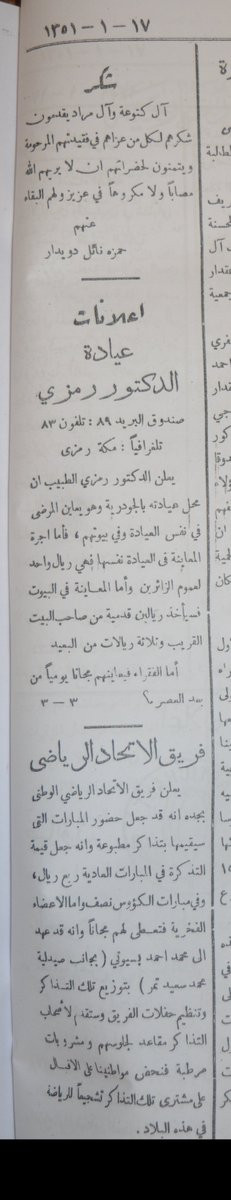 ١٧ - ١ - ١٣٥١
شكر
آل كتوعة وآل مراد يقدمون
شكرهم لكل من عزاهم فى فقيدتهم المرحومة
ويتمنون لحضراتهم ان لا يريهم الله
مصاباً ولا مكروهاً في عزيز ولهم البقاء
عنهم
حمزه نائل دويدار
اعلانات
عيادة
الدكتور رمزي
صندوق البريد ٨٩ : تلفون ٨٣
تلغرافياً : مكة رمزى
يعلن الدكتور رمزي الطبيب ان
محل عيادته بالجودرية وهو يعاين المرضى
في نفس العيادة وفي بيوتهم ، فأما اجرة
المعاينة فى العيادة نفسها فهي ريال واحد
لعموم الزائرين وأما المعاينة في البيوت
فسيأخذ ريالين قدمية من صاحب البيت
القريب وثلاثة ريالات من البعيد
أما الفقراء فيعاينهم مجانا يومياً من
بعد العصر ؟ ٣ – ٣
فريق الاتحاد الرياضى
يعلن فريق الاتحاد الرياضي الوطنى
بجده انه قد جعل حضور المبارات التى
سيقيمها بتذاكر مطبوعة وانه جعل قيمة
التذكرة في المبارات العادية ربع ريال ،
وفي مبارات الكؤوس نصف واما الاعضاء
الفخرية فتعطى لهم مجاناً وانه قد عهد
الى محمد احمد بسيوني ( بجانب صيدلية
محمد سعيد تمر ) بتوزيع تلك التذاكر
وتنظيم حفلات الفريق وستقدم لأصحاب
التذاكر مقاعد لجلوسهم ومشروبات
مرطبة فنحض مواطنينا على الاقبال
على مشترى تلك التذاكر تشجيعاً للرياضة
في هذه البلاد .